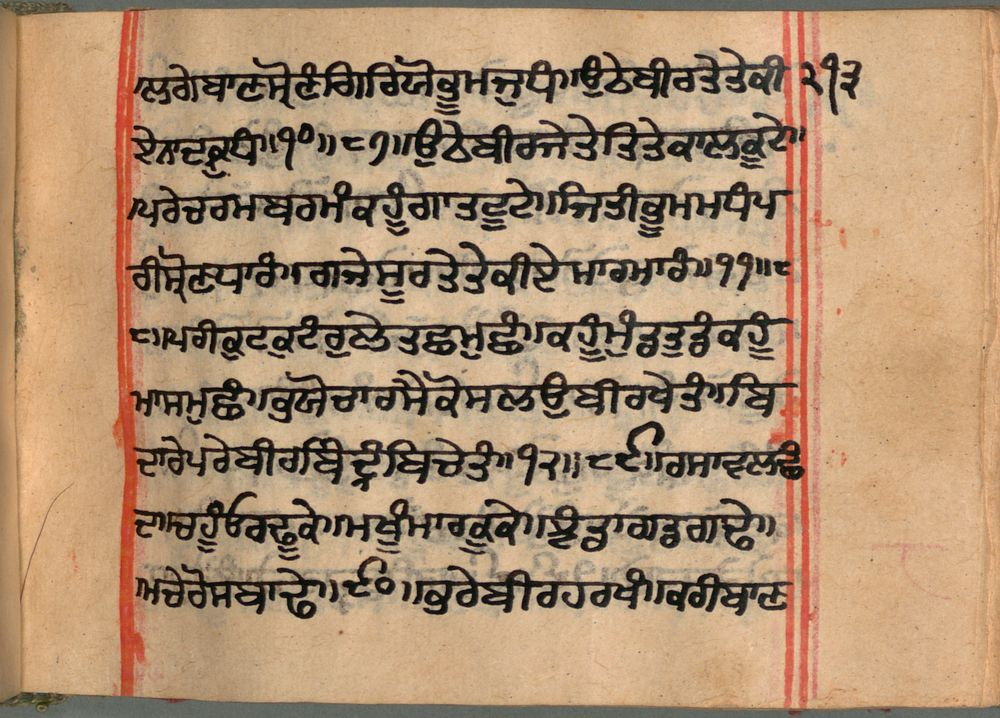 ਲਗੇਬਾਣਸ੍ਰੋਣੰਗਿਰਿਯੋਭੂਮਜੁਧੰ॥ਉਠੇਬੀਰਤੇਤੇਕੀ ੨੧੩
ਏਨਾਦਕ੍ਰੁਧੰ॥੧੦॥੮੭॥ਉਠੇਬੀਰਜੇਤੇਤਿਤੇਕਾਲਕੂਟੇ॥
ਪਰੇਚਰਮਬਰਮੰਕਹੂੰਗਾਤਟੂਟੇ॥ਜਿਤੀਭੂਮਮਧੰਪ
ਰੀਸ੍ਰੋਣਧਾਰੰ॥ਗਜੇਸੂਰਤੇਤੇਕੀਏਮਾਰਮਾਰੰ॥੧੧॥੮
੮॥ਪਰੀਕੁਟਕੁਟੰਰੁਲੇਤੁਛਮੁਛੰ॥ਕਹੂੰਮੁੰਡਤੁੰਡੰਕਹੂੰ
ਮਾਸਮੁਛੰ॥ਭਯੋਚਾਰਸੈਕੋਸਲਉਬੀਰਖੇਤੰ॥ਬਿ
ਦਾਰੇਪਰੇਬੀਰਬਿੰਦ੍ਰੰਬਿਚੇਤੰ॥੧੨॥੮੯॥ਰਸਾਵਲਛੰ
ਦ॥ਚਹੂੰਓਰਢੂਕੇ॥ਮੁਖੰਮਾਰਕੂਕੇ॥ਝੰਡਾਗਡਗਾਢੇ॥
ਮਚੇਰੋਸਬਾਢੇ॥੯੦॥ਭਰੇਬੀਰਹਰਖੰ॥ਕਰੀਬਾਣ